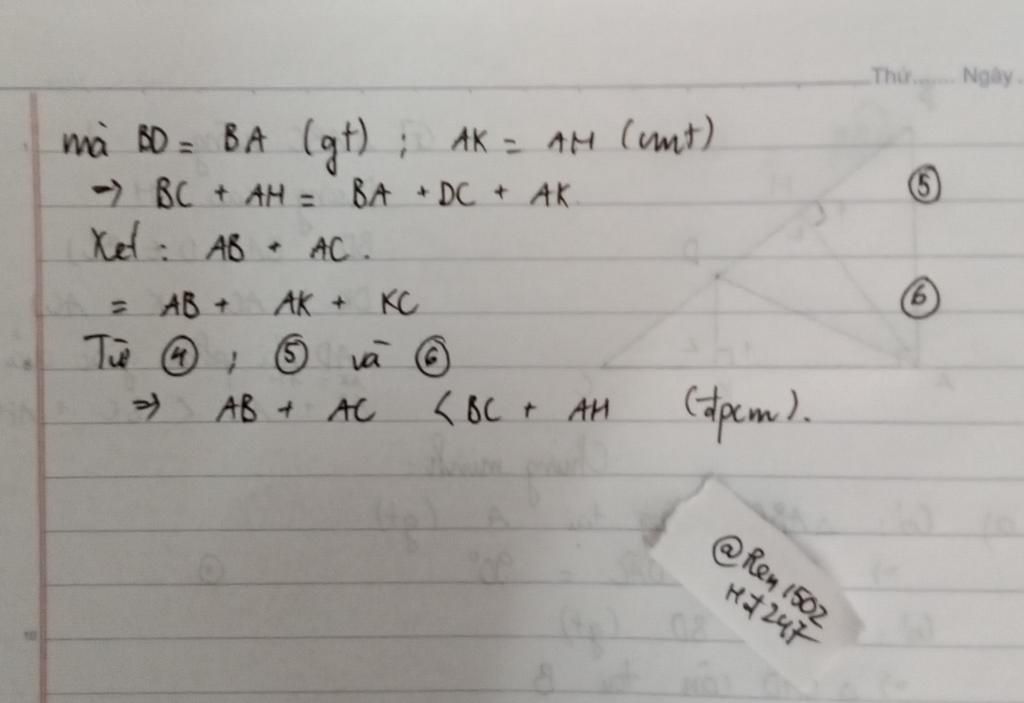 Thứ....... Ngày.
mà BD = BA (gt) ; AK = AH (cmt)
→ BC + AH = BA + DC + AK ⑤
Xét : AB + AC.
= AB + AK + KC ⑥
Từ ④ ; ⑤ và ⑥
⇒ AB + AC < BC + AH (đpcm).
@Ren1502
H7247